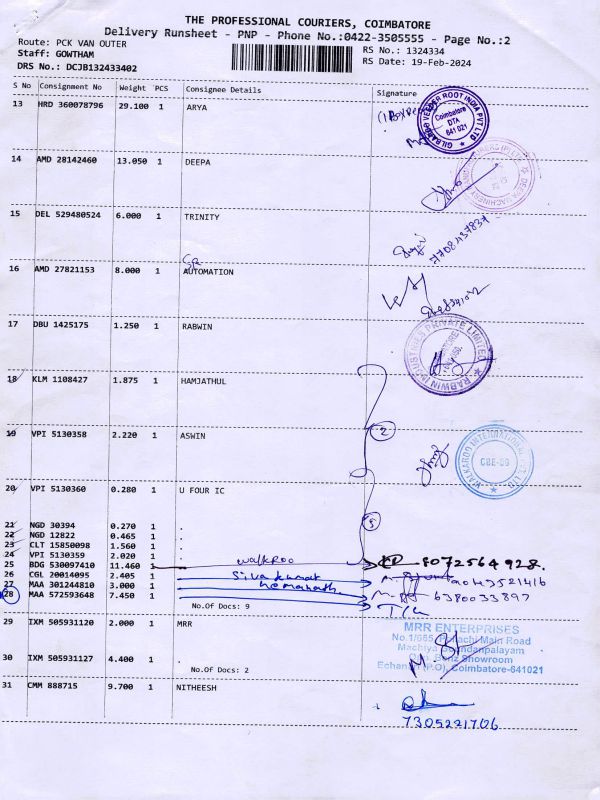 THE PROFESSIONAL COURIERS, COIMBATORE
Delivery Runsheet - PNP - Phone No.:0422-3505555 - Page No.:2
Route: PCK VAN OUTER
RS No.: 1324334
Staff: GOWTHAM
RS Date: 19-Feb-2024
DRS No.: DCJB132433402
S No Consignment No Weight PCS Consignee Details Signature
13 HRD 360078796 29.100 1 ARYA
GILBARCO VEEDER ROOT INDIA PVT LTD
Coimbatore
DTA
641 021
14 AMD 28142460 13.050 1 DEEPA
15 DEL 529480524 6.000 1 TRINITY
7708437837
16 AMD 27821153 8.000 1 AUTOMATION
SR
17 DBU 1425175 1.250 1 RABWIN
RABWIN INDUSTRIES PRIVATE LIMITED
18 KLM 1108427 1.875 1 HAMJATHUL
19 VPI 5130358 2.220 1 ASWIN
2
WALKAROO INTERNATIONAL PVT. LTD
CBE-09
20 VPI 5130360 0.280 1 U FOUR IC
5
21 NGD 30394 0.270 1 .
22 NGD 12822 0.465 1 .
23 CLT 15850098 1.560 1 .
24 VPI 5130359 2.020 1 .
25 BDG 530097410 11.460 1 walkroo 8072564928.
26 CGL 20014095 2.405 1 Sivakumar
27 MAA 301244810 3.000 1 hemanath.
28 MAA 572593648 7.450 1 . 6380033897
No.Of Docs: 9
29 IXM 505931120 2.000 1 MRR
MRR ENTERPRISES
No.1/665, Pollachi Main Road
Machiya Goundanpalayam
Opp. Benz Showroom
Echanari (P.O), Coimbatore-641021
30 IXM 505931127 4.400 1 .
No.Of Docs: 2
31 CMM 888715 9.700 1 NITHEESH
7305221706